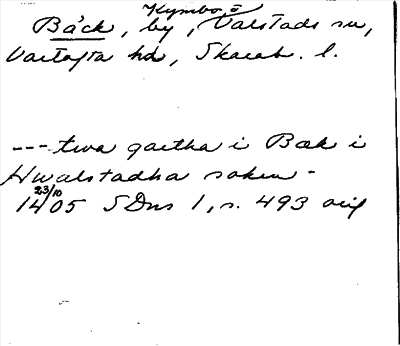 Kymbo ö
Bäck, by, Valstads sn,
Vartofta hd, Skarab. l.
--- twa gærdha i Bæk i
Hwalstadha sokn -
23/10
1405 SDns 1, s. 493 orig